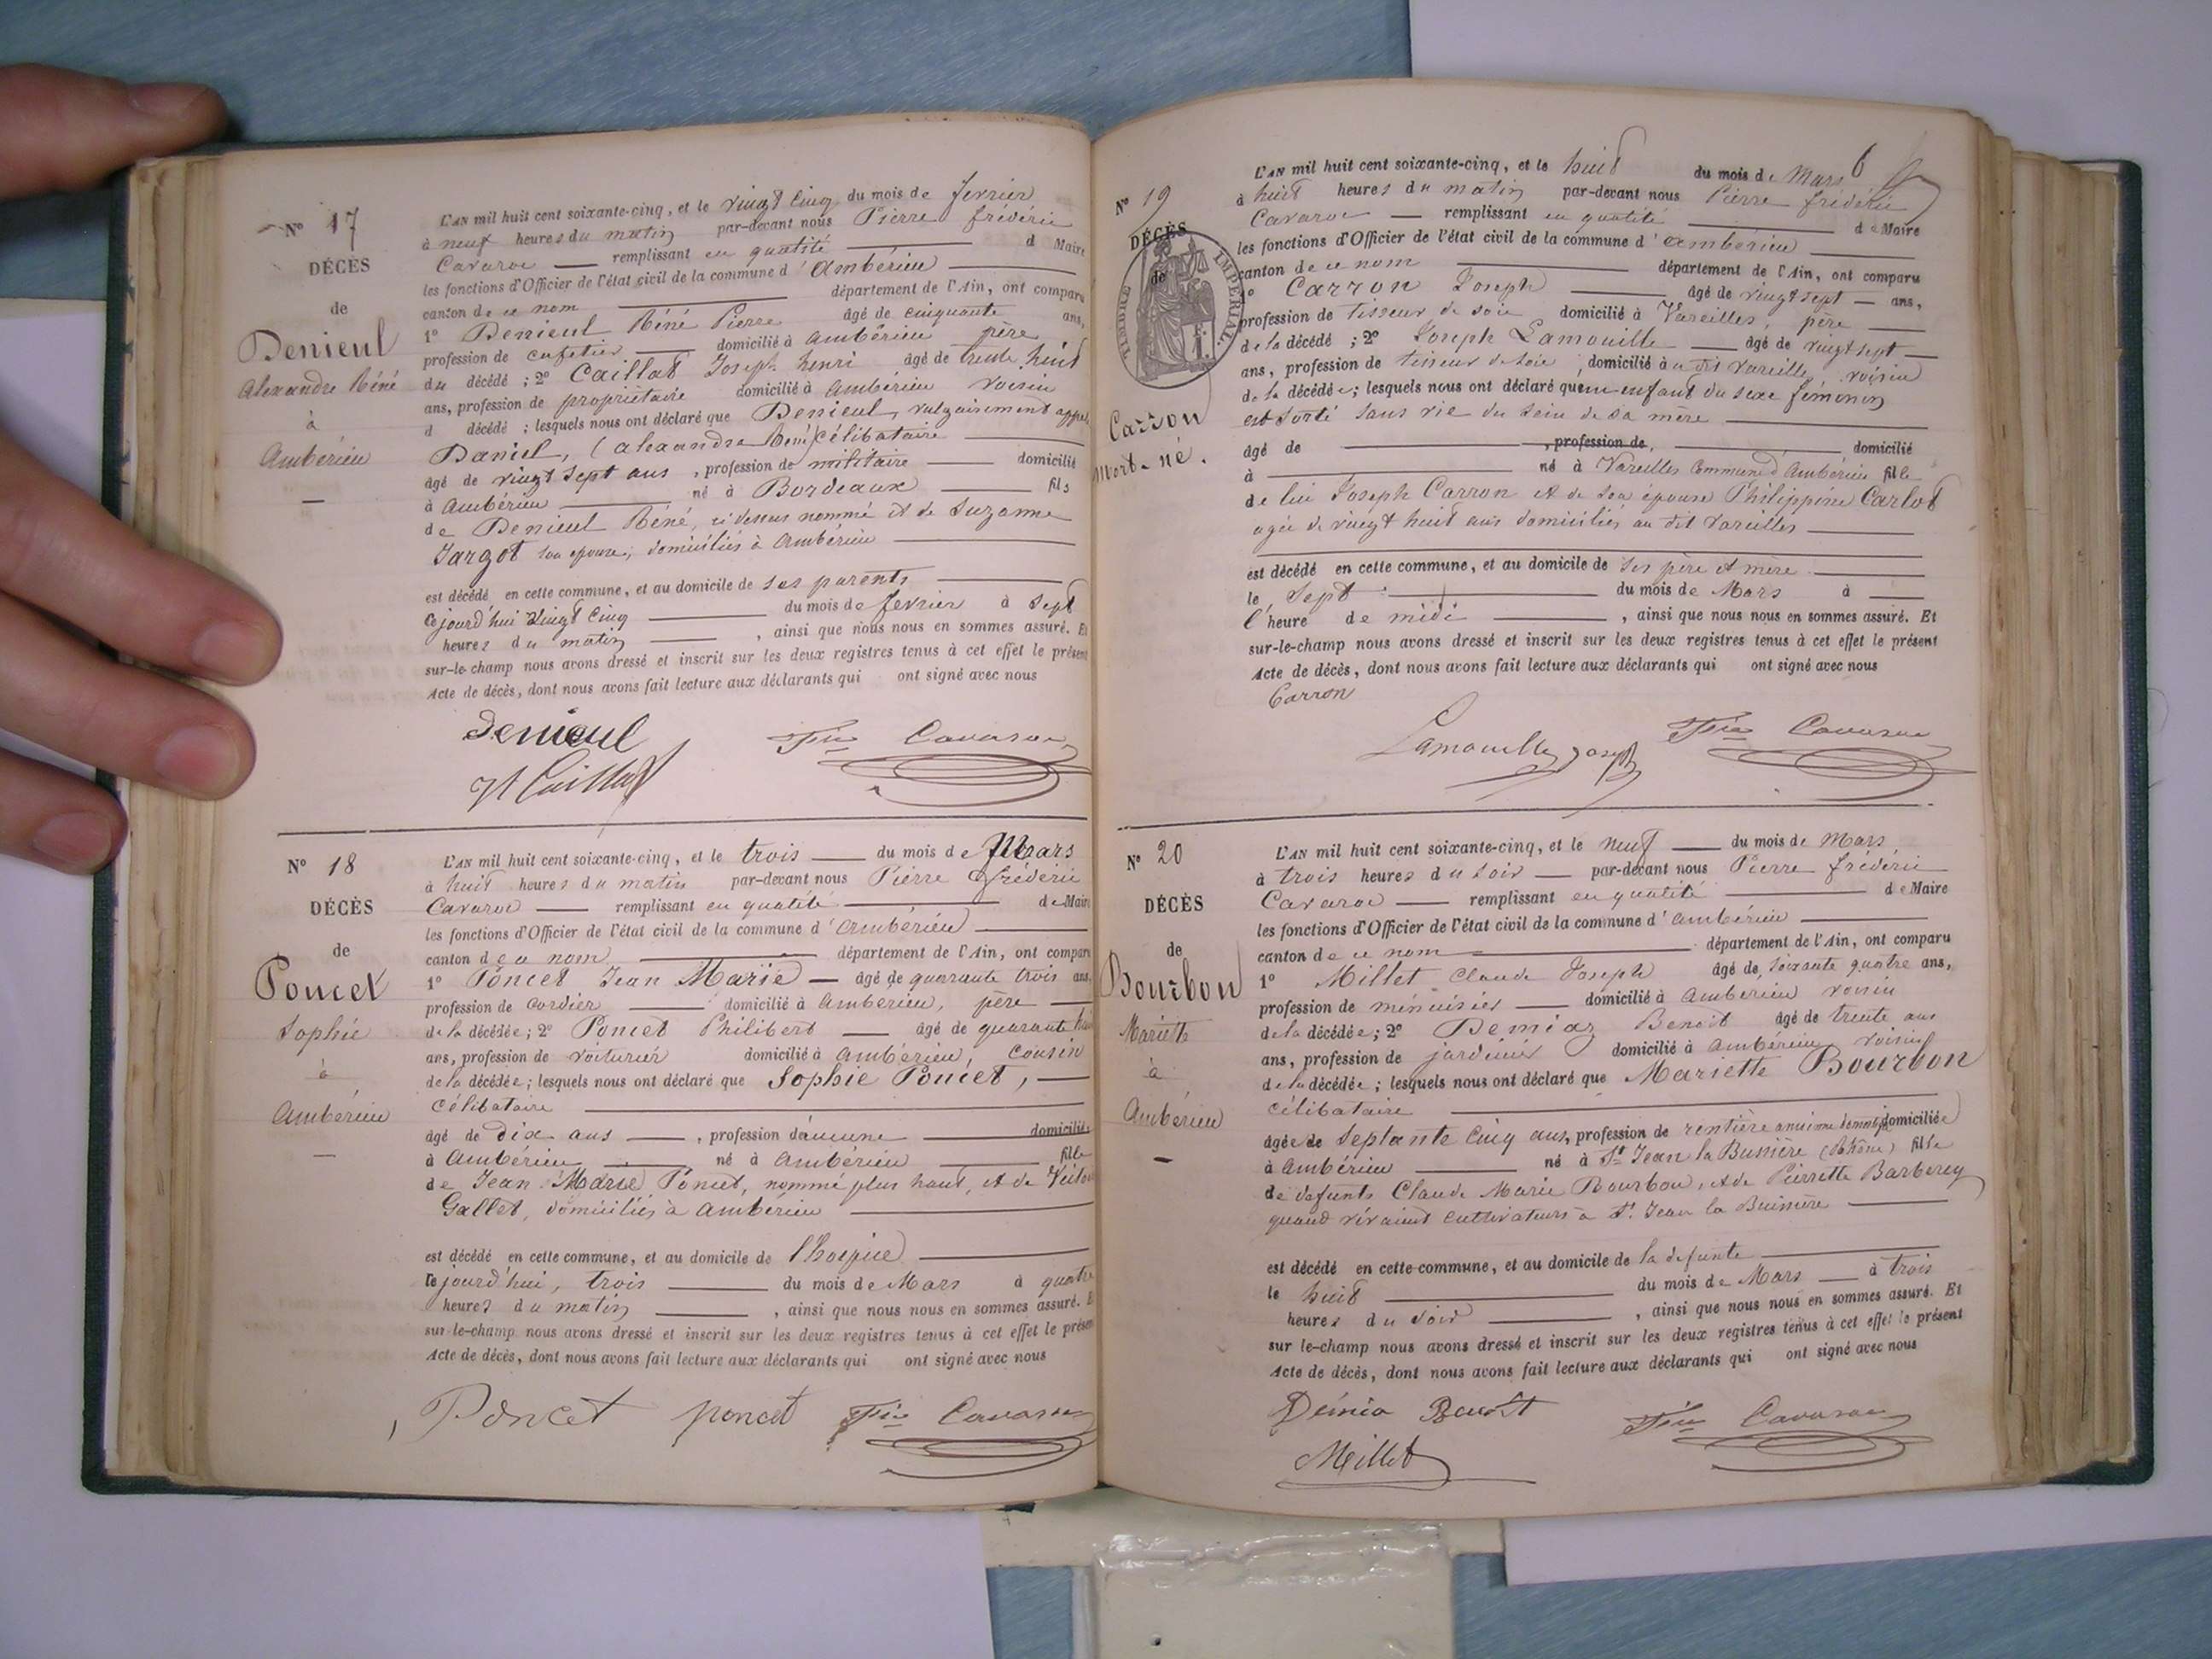 N° 17
DÉCÈS
de
Denieul
Alexandre Réné
à
Ambérieu
L'AN mil huit cent soixante-cinq, et le vingt cinq du mois de fevrier
à neuf heures du matin par-devant nous Pierre fréderic
Cavaroc remplissant en qualité de Maire
les fonctions d'Officier de l'état civil de la commune d'Ambérieu
canton de ce nom département de l'Ain, ont comparu
1° Denieul Réné Pierre âgé de cinquante ans,
profession de cafetier domicilié à Ambérieu père
du décédé ; 2° Caillat Joseph henri âgé de trente huit
ans, profession de propriétaire domicilié à Ambérieu voisin
d décédé ; lesquels nous ont déclaré que Denieul, vulgairement appelé
Daniel, (alexandre Réné) célibataire
âgé de vingt sept ans, profession de militaire domicilié
à Ambérieu né à Bordeaux fils
de Denieul Réné, ci dessus nommé et de Suzanne
Jargot son epouse, domiciliés à Ambérieu
est décédé en cette commune, et au domicile de ses parents
cejourd'hui vingt cinq du mois de fevrier à sept
heures du matin, ainsi que nous nous en sommes assuré. Et
sur-le-champ nous avons dressé et inscrit sur les deux registres tenus à cet effet le présent
Acte de décès, dont nous avons fait lecture aux déclarants qui ont signé avec nous
Denieul
H Caillat
Fric Cavaroc
N° 18
DÉCÈS
de
Poncet
Sophie
à
Ambérieu
L'AN mil huit cent soixante-cinq, et le trois du mois de Mars
à huit heures du matin par-devant nous Pierre fréderic
Cavaroc remplissant en qualité de Maire
les fonctions d'Officier de l'état civil de la commune d'Ambérieu
canton de ce nom département de l'Ain, ont comparu
1° Poncet Jean Marie âgé de quarante trois ans,
profession de cordier domicilié à Ambérieu, père
de la décédée ; 2° Poncet Philibert âgé de quarante
ans, profession de voiturier domicilié à Ambérieu, cousin
de la décédée ; lesquels nous ont déclaré que Sophie Poncet,
célibataire
âgé de dix ans, profession d'aucune domiciliée
à Ambérieu né à Ambérieu fille
de Jean Marie Poncet, nommé plus haut, et de
Gallet, domiciliés à Ambérieu
est décédé en cette commune, et au domicile de l'hospice
cejourd'hui, trois du mois de Mars à quatre
heures du matin, ainsi que nous nous en sommes assuré. Et
sur-le-champ nous avons dressé et inscrit sur les deux registres tenus à cet effet le présent
Acte de décès, dont nous avons fait lecture aux déclarants qui ont signé avec nous
Poncet poncet Fric Cavaroc
6
N° 19
DÉCÈS
de
TIMBRE IMPÉRIAL
Carron
Mort-né.
L'AN mil huit cent soixante-cinq, et le huit du mois de Mars
à huit heures du matin par-devant nous Pierre fréderic
Cavaroc remplissant en qualité de Maire
les fonctions d'Officier de l'état civil de la commune d'Ambérieu
canton de ce nom département de l'Ain, ont comparu
1° Carron Joseph âgé de vingt sept ans,
profession de tisseur de soie domicilié à Vareilles, père
de la décédé ; 2° Joseph Lamouille âgé de vingt sept
ans, profession de tisseur de soie domicilié au dit Vareille, voisin
de la décédée ; lesquels nous ont déclaré qu'un enfant du sexe féminin
est sorti sans vie du sein de sa mère
âgé de, profession de, domicilié
à né à Vareilles commune d'Ambérieu fille
de lui Joseph Carron et de son épouse Philippine Carlot
agée de vingt huit ans domiciliés au dit Vareilles
est décédé en cette commune, et au domicile de ses père et mère
le Sept du mois de Mars à
l'heure de midi, ainsi que nous nous en sommes assuré. Et
sur-le-champ nous avons dressé et inscrit sur les deux registres tenus à cet effet le présent
Acte de décès, dont nous avons fait lecture aux déclarants qui ont signé avec nous
Carron
Lamouille Joseph Fric Cavaroc
N° 20
DÉCÈS
de
Bourbon
Mariette
à
Ambérieu
L'AN mil huit cent soixante-cinq, et le neuf du mois de Mars
à trois heures du soir par-devant nous Pierre fréderic
Cavaroc remplissant en qualité de Maire
les fonctions d'Officier de l'état civil de la commune d'Ambérieu
canton de ce nom département de l'Ain, ont comparu
1° Millet Claude Joseph âgé de soixante quatre ans,
profession de menuisier domicilié à Ambérieu voisin
de la décédée ; 2° Demiaz Benoit âgé de trente ans
ans, profession de jardinier domicilié à Ambérieu voisin
de la décédée ; lesquels nous ont déclaré que Mariette Bourbon
célibataire
âgée de septante cinq ans, profession de rentière domiciliée
à Ambérieu né à St Jean la Bussière (Rhône) fille
de defunts Claude Marie Bourbon, et de Pierrette Barberey
quand vivaient cultivateurs à St Jean la Buissière
est décédé en cette commune, et au domicile de la defunte
le huit du mois de Mars à trois
heures du soir, ainsi que nous nous en sommes assuré. Et
sur le-champ nous avons dressé et inscrit sur les deux registres tenus à cet effet le présent
Acte de décès, dont nous avons fait lecture aux déclarants qui ont signé avec nous
Démia Benoit
Millet
Fric Cavaroc